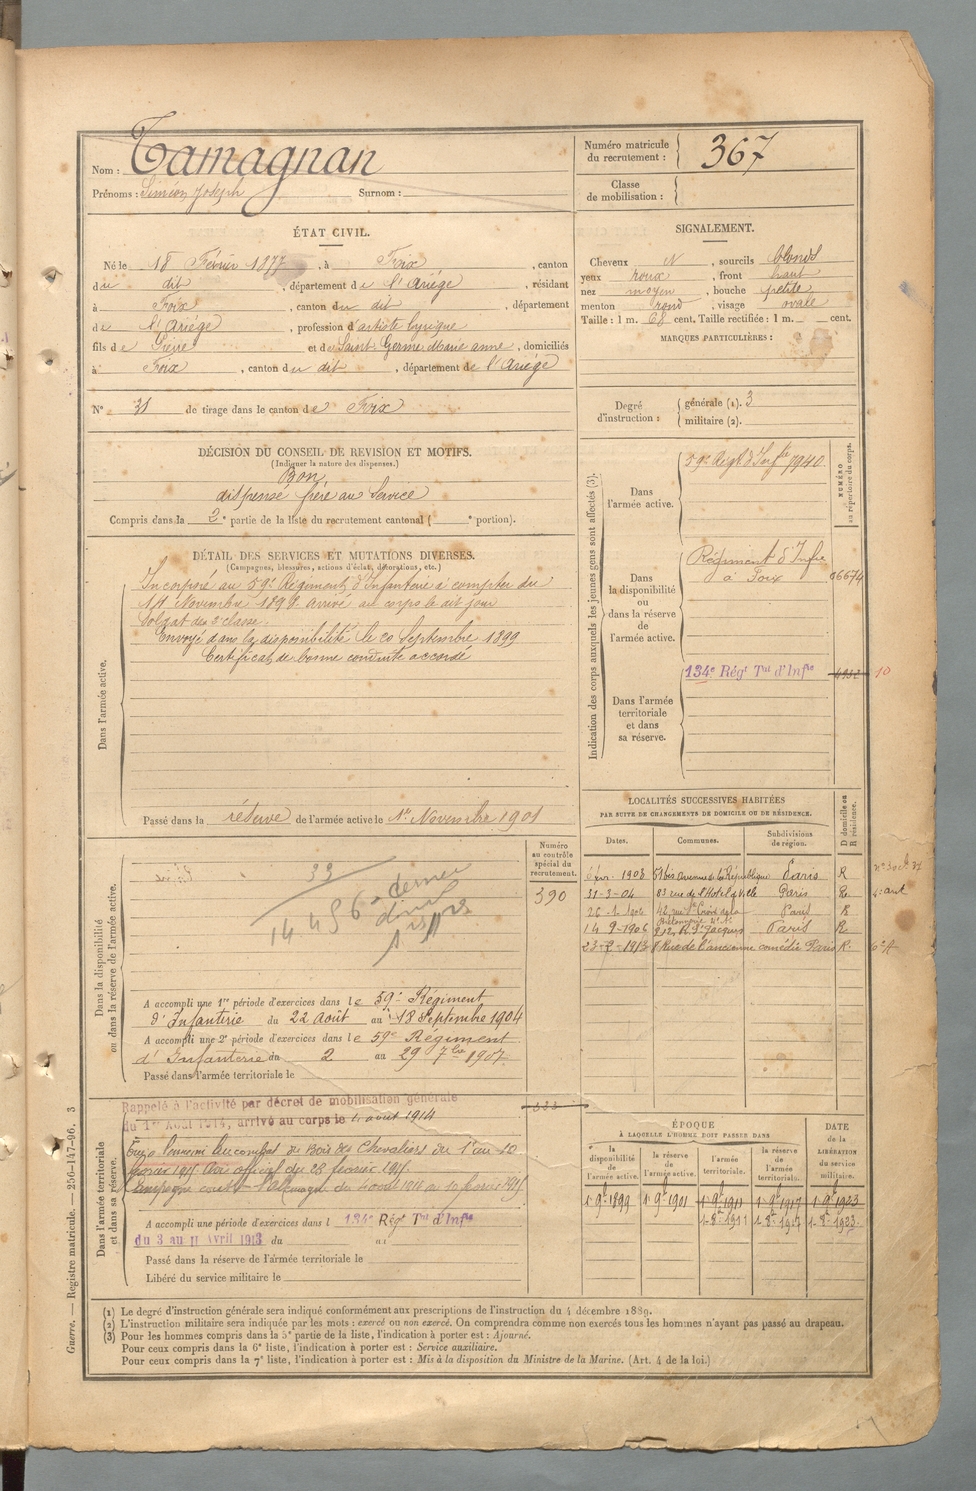 Nom : Tamagnan
Prénoms : Siméon Joseph Surnom :
Numéro matricule du recrutement : 367
Classe de mobilisation :
ÉTAT CIVIL.
Né le 18 Février 1877, à Foix, canton
du dit, département de l'Ariège, résidant
à Foix, canton du dit, département
de l'Ariège, profession d'artiste lyrique
fils de Pierre et de Saint Germé Marie anne, domiciliés
à Foix, canton du dit, département de l'Ariège
N° 31 de tirage dans le canton de Foix
SIGNALEMENT.
Cheveux N, sourcils blonds
yeux roux, front haut
nez moyen, bouche petite
menton rond, visage ovale
Taille : 1 m. 68 cent. Taille rectifiée : 1 m. cent.
MARQUES PARTICULIÈRES :
Degré d'instruction : générale (1). 3
militaire (2).
DÉCISION DU CONSEIL DE REVISION ET MOTIFS.
(Indiquer la nature des dispenses.)
Bon
dispensé frère au Service
Compris dans la 2e partie de la liste du recrutement cantonal ( e portion).
DÉTAIL DES SERVICES ET MUTATIONS DIVERSES.
(Campagnes, blessures, actions d'éclat, décorations, etc.)
Dans l'armée active.
Incorporé au 59e Régiment d'Infanterie à compter du
Novembre 1898 arrivé au corps le dit jour
Soldat de 2e classe.
Envoyé dans la disponibilité le 20 Septembre 1899
Certificat de bonne conduite accordé
Passé dans la réserve de l'armée active le 1er Novembre 1901
Indication des corps auxquels les jeunes gens sont affectés (3).
NUMÉRO au répertoire du corps.
Dans l'armée active.
59e Régt d'Inftie 7940
Dans la disponibilité ou dans la réserve de l'armée active.
Régiment d'Infie
à Foix 06674
Dans l'armée territoriale et dans sa réserve.
134e Régt Tal d'Infie 10
LOCALITÉS SUCCESSIVES HABITÉES
PAR SUITE DE CHANGEMENTS DE DOMICILE OU DE RÉSIDENCE.
Dates. Communes. Subdivisions de région. D domicile ou R résidence.
1903 51 bis avenue de la République Paris R
31-3-04 83 rue de l'Hotel de Ville Paris R
26-1-1906 42, rue Ste Croix de la Bretonnerie Paris R
14-9-1906 212, R. St Jacques Paris R
1913 8 Rue de l'ancienne comédie Paris R
Dans la disponibilité ou dans la réserve de l'armée active.
Numéro au contrôle spécial du recrutement.
390
33
A accompli une 1re période d'exercices dans le 59e Régiment
d'Infanterie du 22 Août au 18 Septembre 1904
A accompli une 2e période d'exercices dans le 59e Régiment
d'Infanterie du 2 au 29 7bre 1907
Passé dans l'armée territoriale le
Dans l'armée territoriale et dans sa réserve.
Rappelé à l'activité par décret de mobilisation générale
du 1er Août 1914, arrivé au corps le 4 août 1914
Tué à l'ennemi au combat du Bois des Chevaliers du 1er au 10
février 1915 Avis officiel du 28 février 1915
Campagne contre l'Allemagne du 4 août 1914 au 10 février 1915
A accompli une période d'exercices dans l 134e Régt Tal d'Infie
du 3 au 11 Avril 1913 du au
Passé dans la réserve de l'armée territoriale le
Libéré du service militaire le
ÉPOQUE
À LAQUELLE L'HOMME DOIT PASSER DANS
la disponibilité de l'armée active.
la réserve de l'armée active.
l'armée territoriale.
la réserve de l'armée territoriale.
DATE de la LIBÉRATION du service militaire.
1er 9bre 1899 1er 9bre 1901 1er 9bre 1911 1er 9bre 1917 1er 9bre 1923
1-8bre 1911 1-8bre 1917 1-8bre 1923
(1) Le degré d'instruction générale sera indiqué conformément aux prescriptions de l'instruction du 4 décembre 1889.
(2) L'instruction militaire sera indiquée par les mots : exercé ou non exercé. On comprendra comme non exercés tous les hommes n'ayant pas passé au drapeau.
(3) Pour les hommes compris dans la 5e partie de la liste, l'indication à porter est : Ajourné.
Pour ceux compris dans la 6e liste, l'indication à porter est : Service auxiliaire.
Pour ceux compris dans la 7e liste, l'indication à porter est : Mis à la disposition du Ministre de la Marine. (Art. 4 de la loi.)
Guerre. — Registre matricule. — 256-147-96. 3